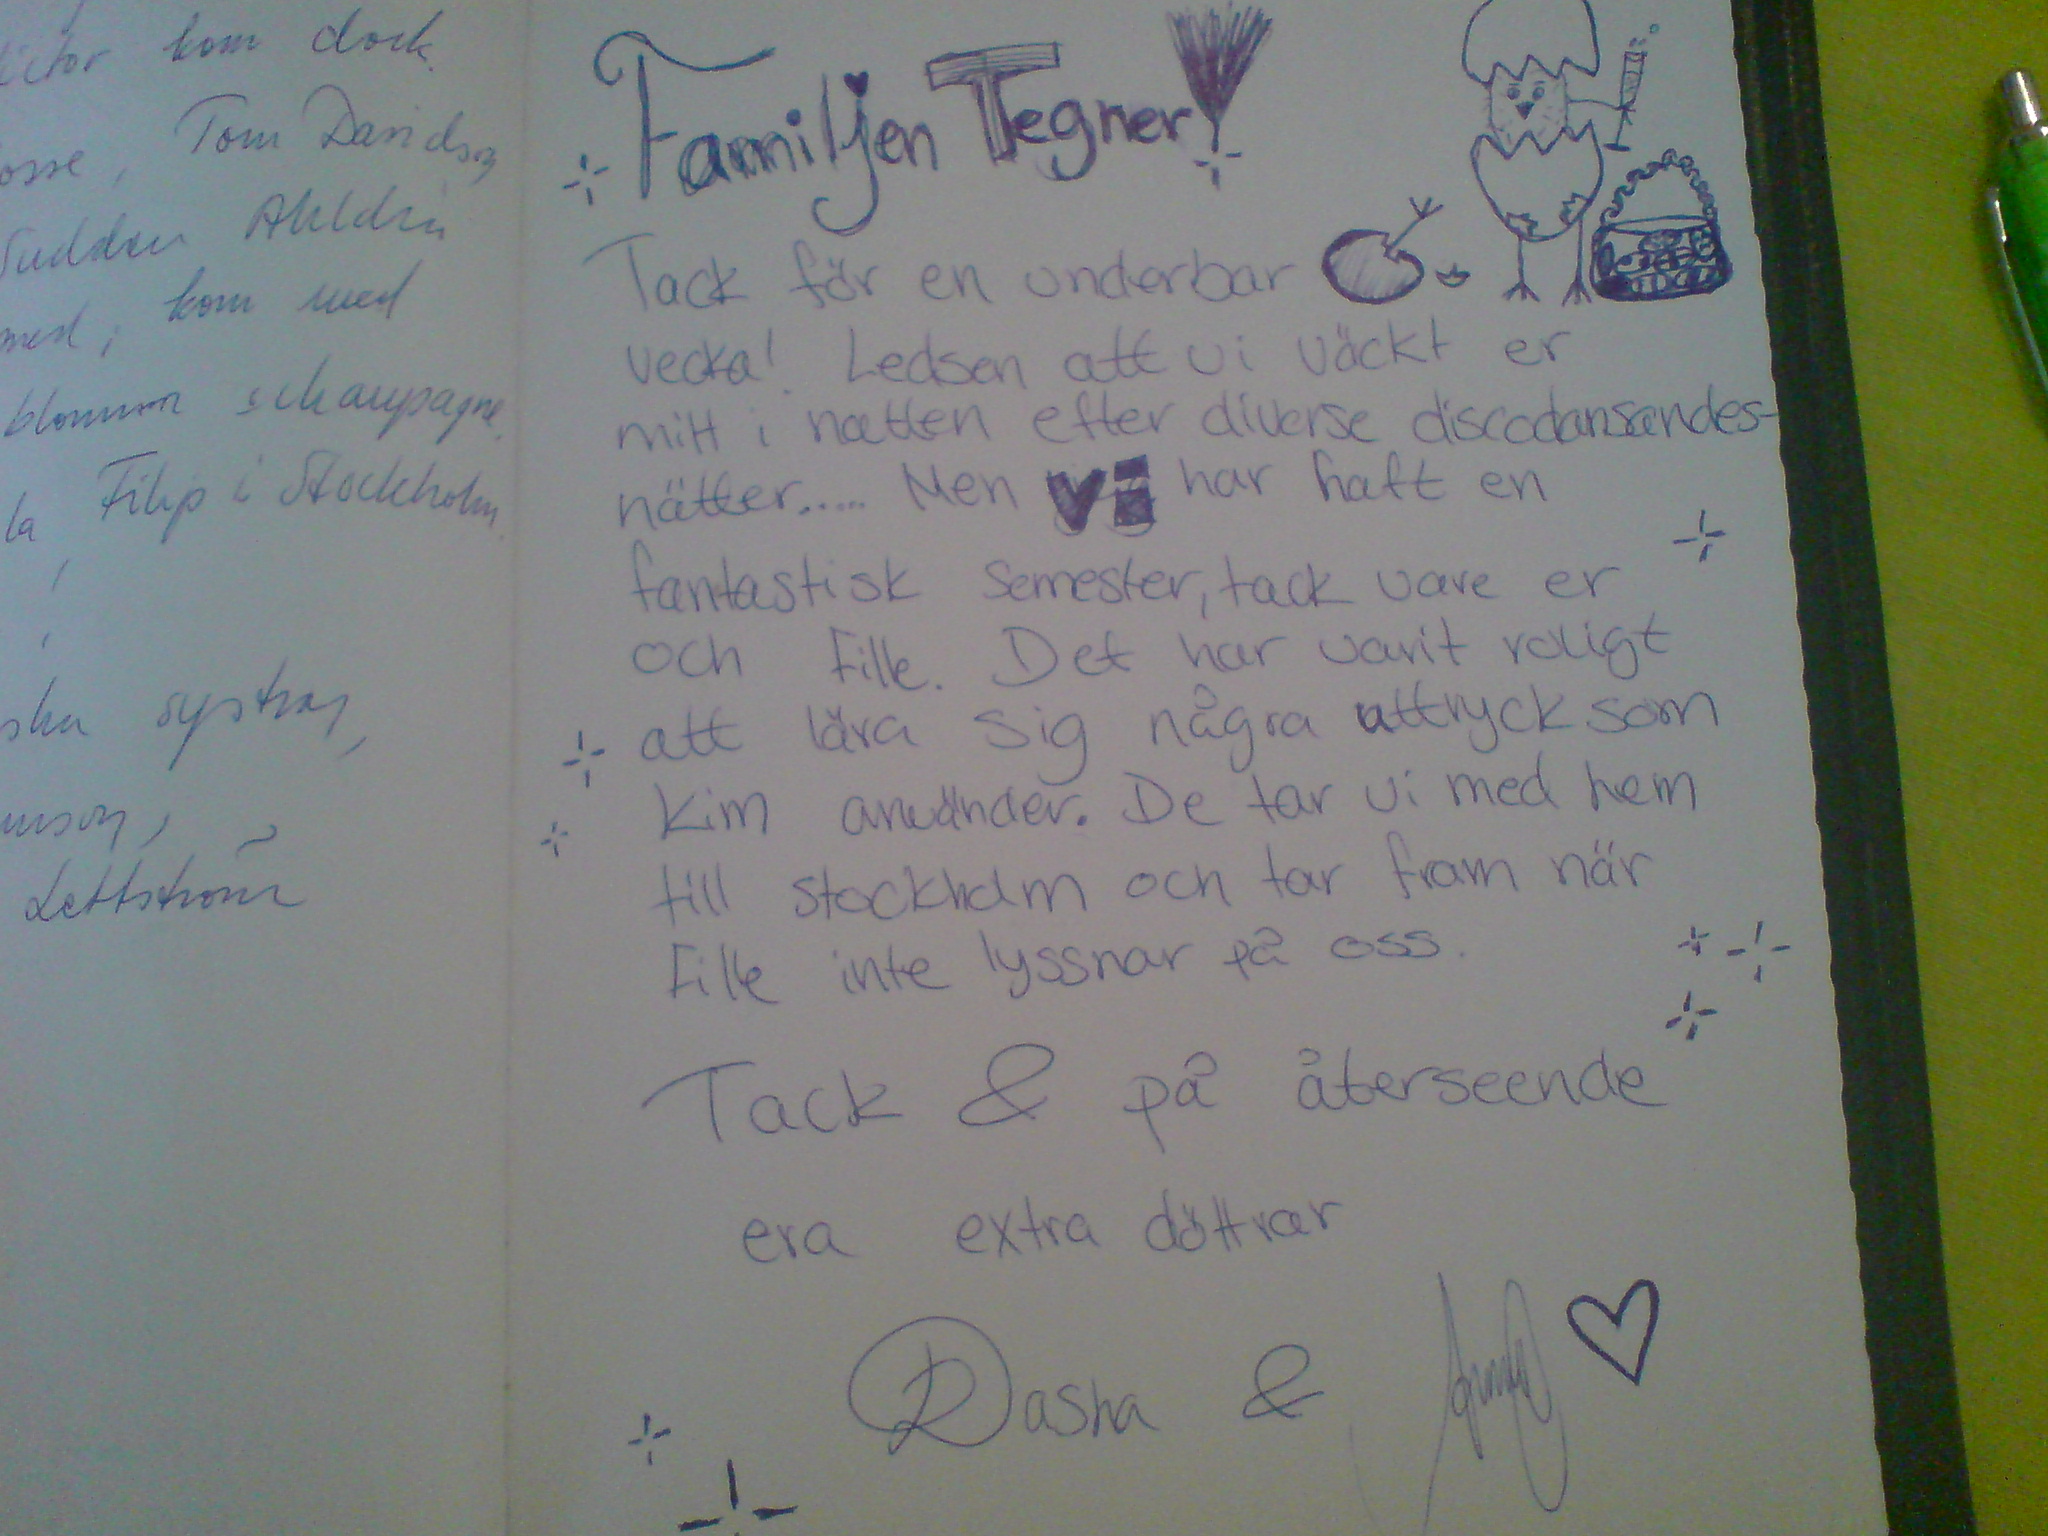 kom dock.
Tom Davidson
kom med
blommor schampagne.
la Filip i Stockholm.
systrar,
Familjen Tegner!
Tack för en underbar
vecka! Ledsen att vi väckt er
mitt i natten efter diverse discodansandes-
nätter..... Men vi har haft en
fantastisk semester, tack vare er
och Fille. Det har varit roligt
att lära sig några uttryck som
Kim använder. De tar vi med hem
till stockholm och tar fram när
Fille inte lyssnar på oss.
Tack & på återseende
era extra döttrar
Dasha &